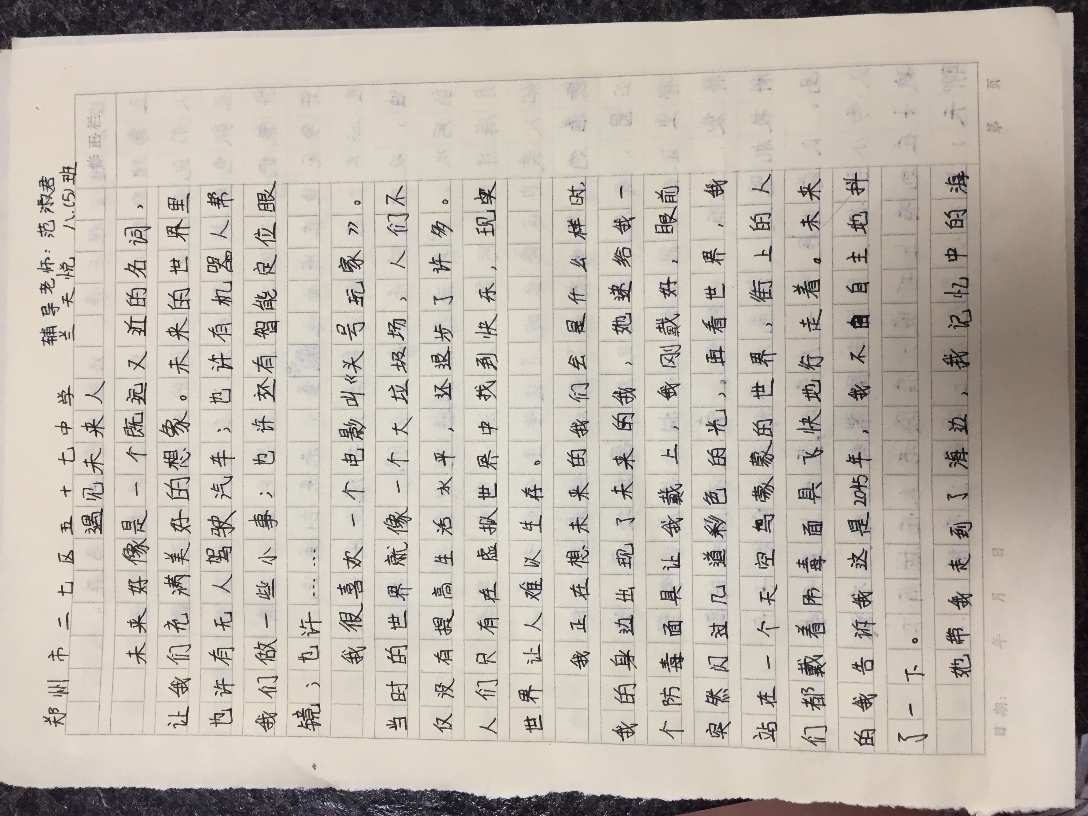 郑州市二七区五十七中学 辅导老师：范淑君
遇见未来人 兰天悦 八(5)班
未来好像是一个既远又近的名词，
让我们充满美好的想象。未来的世界里
也许有无人驾驶汽车；也许有机器人帮
我们做一些小事；也许还有智能定位眼
镜；也许……
我很喜欢一个电影叫《头号玩家》。
当时的世界就像一个大垃圾场，人们不
仅没有提高生活水平，还退步了许多。
人们只有在虚拟世界中找到快乐，现实
世界让人难以生存。
我正在想未来的我们会是什么样时，
我的身边出现了未来的我，她递给我一
个防毒面具让我戴上，我刚戴好，眼前
突然闪过几道彩色的光，再看世界，我
站在一个天空乌蒙蒙的世界，街上的人
们都戴着防毒面具飞快地行走着。未来
的我告诉我这是2045年，我不由自主地抖
了一下。
她带我走到了海边，我记忆中的海
日期： 年 月 日 第 页